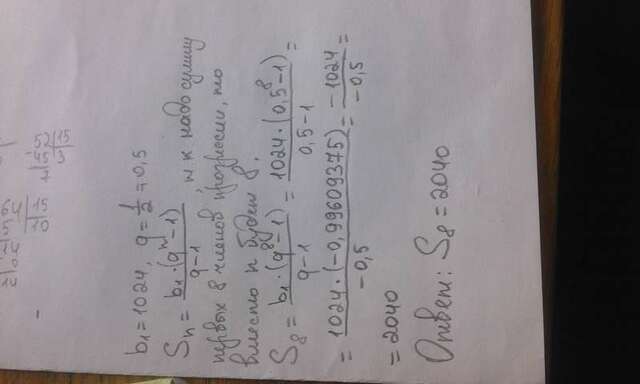 b₁ = 1024, q = 1/2 = 0,5
Sₙ = b₁·(qⁿ-1)/q-1 т к надо сумму
первых 8 членов прогрессии, то
вместо n будем 8.
S₈ = b₁·(q⁸-1)/q-1 = 1024·(0,5⁸-1)/0,5-1 =
= 1024·(-0,99609375)/-0,5 = -1024/-0,5 =
= 2040
Ответ: S₈ = 2040
52|15
45 3
64 15
10